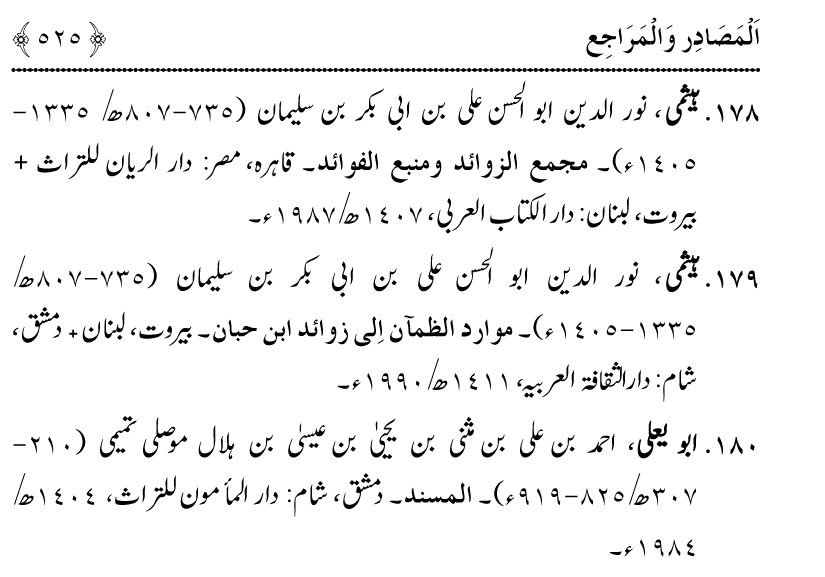 اَلْمَصَادِر وَالْمَرَاجِع ﴿٥٢٥﴾
١٧٨. ہیثمی، نور الدین ابو الحسن علی بن ابی بکر بن سلیمان (٧٣٥-٨٠٧ھ/ ١٣٣٥-
١٤٠٥ء)۔ مجمع الزوائد ومنبع الفوائد۔ قاہرہ، مصر: دار الریان للتراث +
بیروت، لبنان: دار الکتاب العربی، ١٤٠٧ھ/١٩٨٧ء۔
١٧٩. ہیثمی، نور الدین ابو الحسن علی بن ابی بکر بن سلیمان (٧٣٥-٨٠٧ھ/
١٣٣٥-١٤٠٥ء)۔ موارد الظمآن إلی زوائد ابن حبان۔ بیروت، لبنان + دمشق،
شام: دار الثقافۃ العربیہ، ١٤١١ھ/١٩٩٠ء۔
١٨٠. ابو یعلی، احمد بن علی بن مثنی بن یحییٰ بن عیسیٰ بن ہلال موصلی تمیمی (٢١٠-
٣٠٧ھ/٨٢٥-٩١٩ء)۔ المسند۔ دمشق، شام: دار المأمون للتراث، ١٤٠٤ھ/
١٩٨٤ء۔